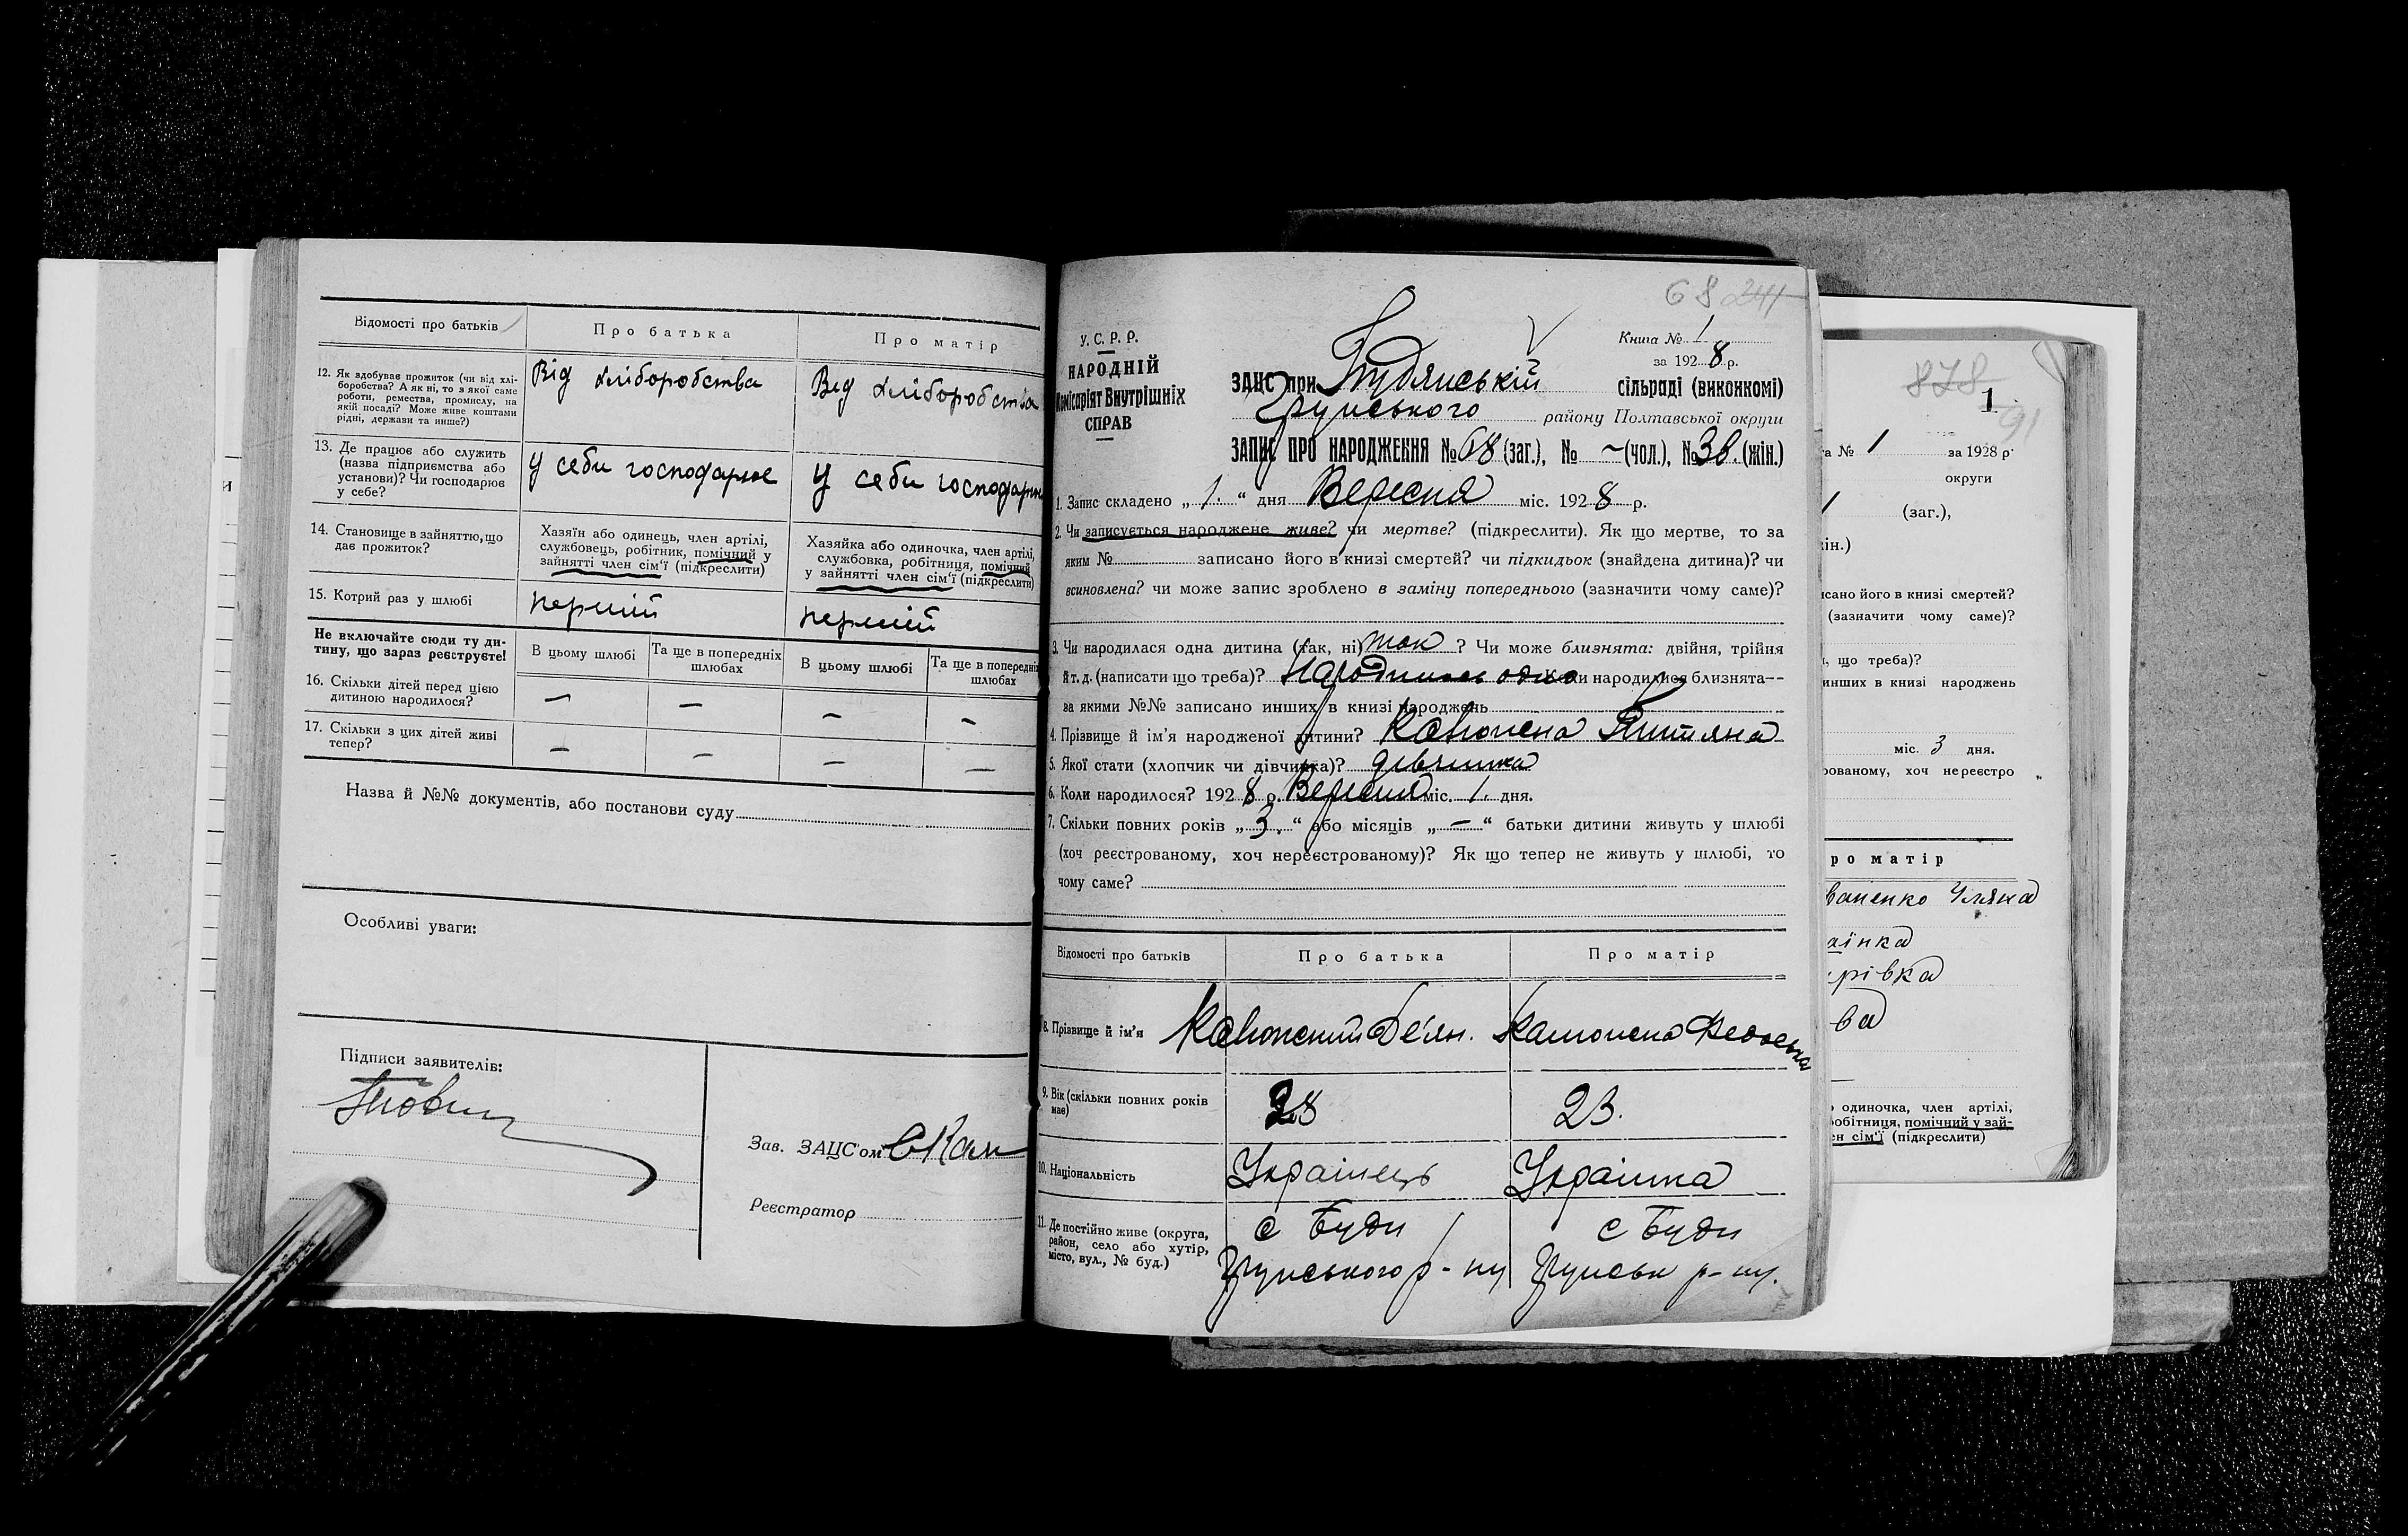 Відомості про батьків
Про батька
Про матір
12. Як здобуває прожиток (чи від хлі-
боробства? А як ні, то з якої саме
роботи, ремества, промислу, на
якій посаді? Може живе коштами
рідні, держави та инше?)
Від хліборобства
Від хліборобства
13. Де працює або служить
(назва підприємства або
установи)? Чи господарює
у себе?
У себи господарює
У себи господарює
14. Становище в зайняттю, що
дає прожиток?
Хазяїн або одинець, член артілі,
службовець, робітник, помічний у
зайнятті член сім'ї (підкреслити)
Хазяйка або одиночка, член артілі,
службовка, робітниця, помічний
у зайнятті член сім'ї (підкреслити)
15. Котрий раз у шлюбі
перший
перший
Не включайте сюди ту ди-
тину, що зараз реєструєте!
В цьому шлюбі
Та ще в попередніх
шлюбах
В цьому шлюбі
Та ще в попередніх
шлюбах
16. Скільки дітей перед цією
дитиною народилося?
— — — —
17. Скільки з цих дітей живі
тепер?
— — — —
Назва й №№ документів, або постанови суду
Особливі уваги:
Підписи заявителів:
Зав. ЗАЦС'ом
Реєстратор
68 241
У. С. Р. Р.
НАРОДНІЙ
Комісаріят Внутрішніх
СПРАВ
Книга № 1
за 1928 р.
ЗАЦС при Будянській сільраді (виконкомі)
Грунського району Полтавської округи
ЗАПИС ПРО НАРОДЖЕННЯ № 68 (заг.), № ~ (чол.), № 38. (жін.)
1. Запис складено „ 1. “ дня Вересня міс. 1928 р.
2. Чи записується народжене живе? чи мертве? (підкреслити). Як що мертве, то за
яким № записано його в книзі смертей? чи підкидьок (знайдена дитина)? чи
всиновлена? чи може запис зроблено в заміну попереднього (зазначити чому саме)?
3. Чи народилася одна дитина (так, ні) так ? Чи може близнята: двійня, трійня
й т. д. (написати що треба)? народилась одна ли народилися близнята—
за якими №№ записано инших в книзі народжень
4. Прізвище й ім'я народженої дитини?
5. Якої стати (хлопчик чи дівчинка)? дівчинка
6. Коли народилося? 1928 р. Вересня міс. 1. дня.
7. Скільки повних років „ 3. “ або місяців „ — “ батьки дитини живуть у шлюбі
(хоч реєстрованому, хоч нереєстрованому)? Як що тепер не живуть у шлюбі, то
чому саме?
Відомості про батьків
Про батька
Про матір
8. Прізвище й ім'я
9. Вік (скільки повних років
має)
28
23.
10. Національність
Українець
Українка
11. Де постійно живе (округа,
район, село або хутір,
місто, вул., № буд.)
с Буди
Грунського р-ну
с Буди
Грунськ р-ну.
878
91
1
а № 1 за 1928 р.
округи
(заг.),
ін.)
исано його в книзі смертей?
(зазначити чому саме)?
, що треба)?
инших в книзі народжень
міс. 3 дня.
рованому, хоч нереєстро
ро матір
ваненко Уляна
аїнка
рівка
ва
одиночка, член артілі,
робітниця, помічний у зай-
ен сім'ї (підкреслити)